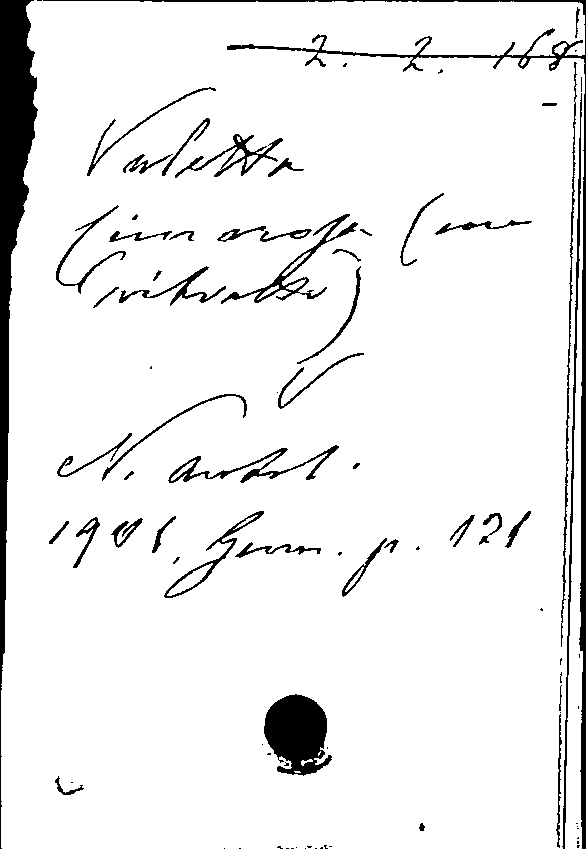 2. 2. 168
Valetta
Cimarosa (con
ritratto)
N. Antol.
1901, Genn. p. 121